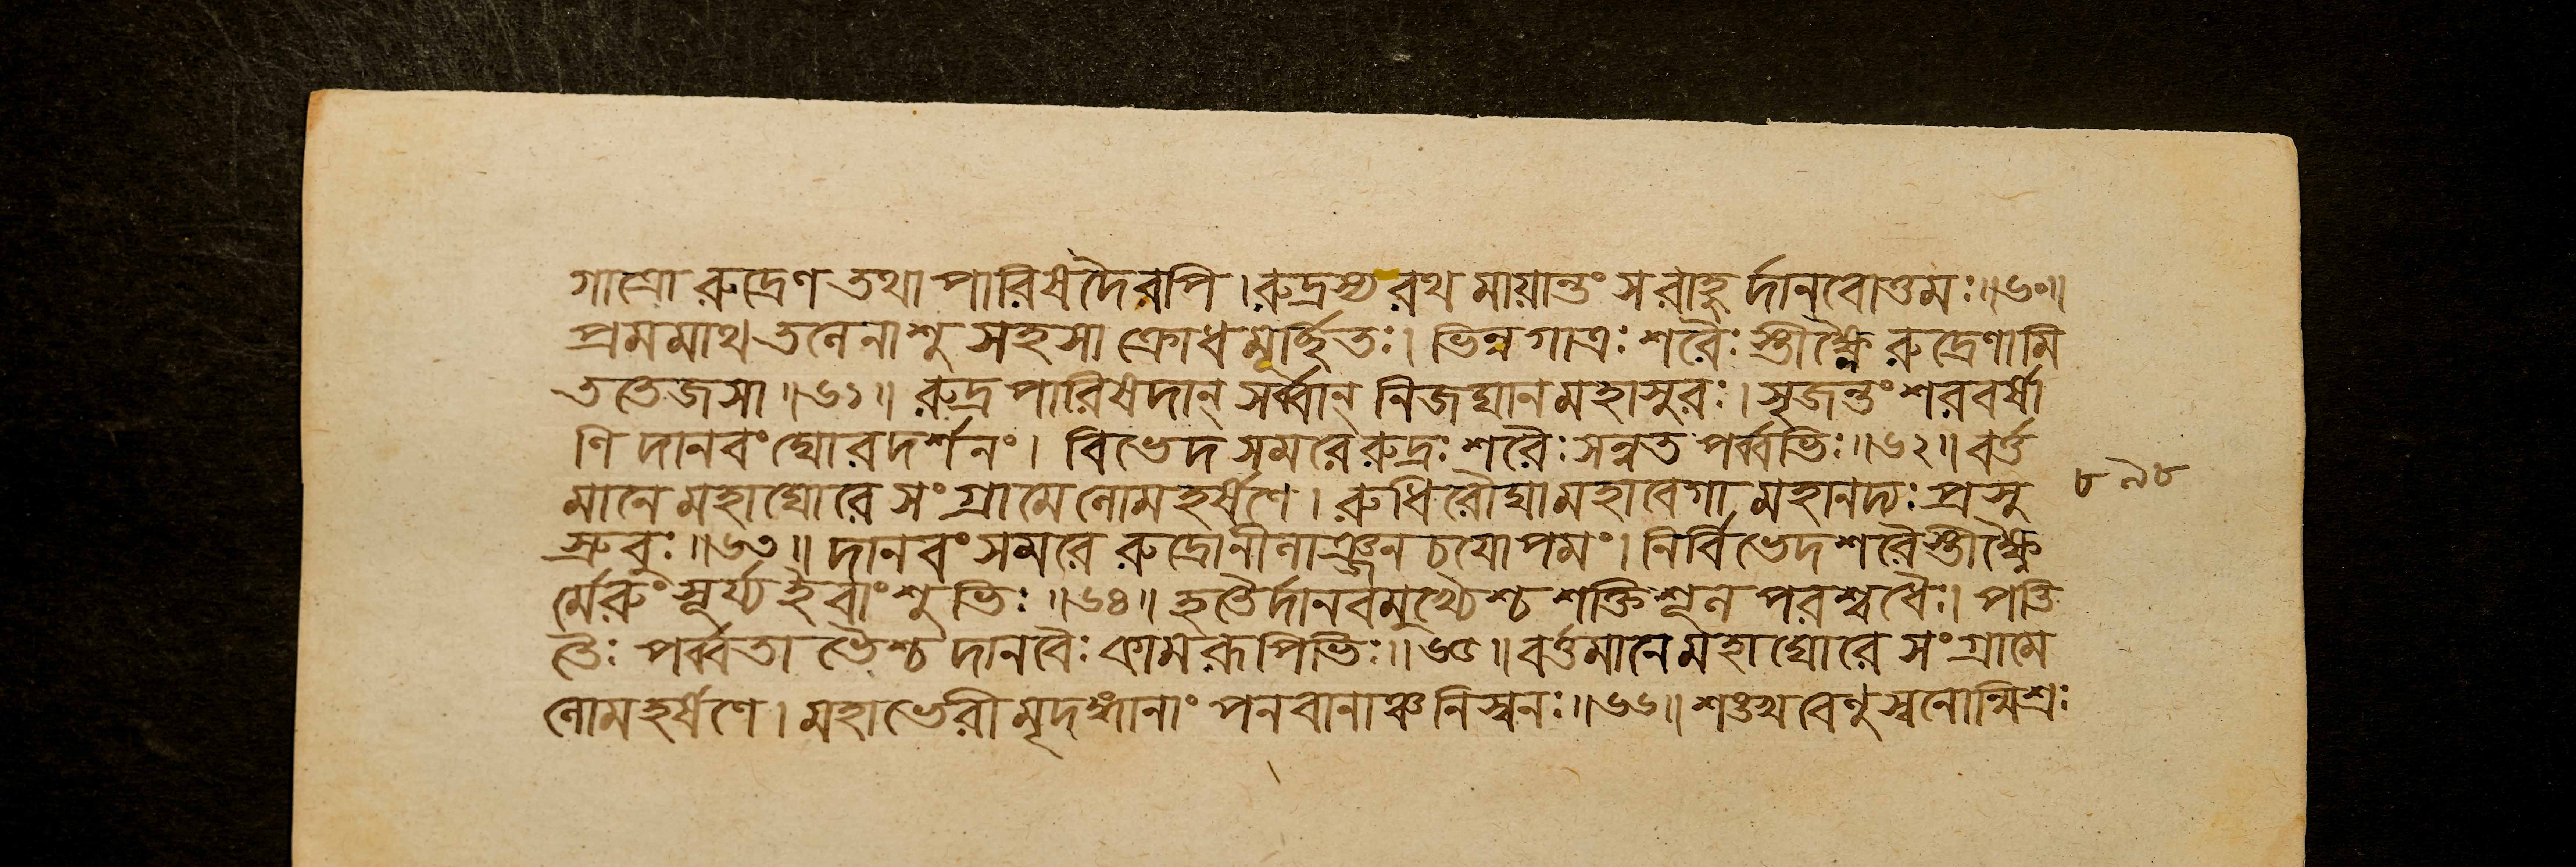 গাত্রো রুদ্রেণ তথা পারিষদৈরপি । রুদ্রস্য রথ মায়ান্তং স রাহু র্দানবোত্তমঃ ॥৬০॥
প্রমমাথ তলেনাশু সহসা ক্রোধ মূর্চ্ছিতঃ । ভিন্ন গাত্রঃ শরৈঃ স্তীক্ষ্ণৈ রুদ্রেণামি
ততেজসা ॥৬১॥ রুদ্র পারিষদান্ সর্ব্বান্ নিজঘান মহাসুরঃ । সৃজন্তং শরবর্ষা
ণি দানবং ঘোর দর্শনং । বিভেদ সমরে রুদ্রঃ শরৈঃ সন্নত পর্ব্বভিঃ ॥৬২॥ বর্ত্ত
মানে মহাঘোরে সংগ্রামে লোমহর্ষণে । রুধিরৌঘা মহাবেগা মহানদ্যঃ প্রসু
স্রুবুঃ ॥৬৩॥ দানবং সমরে রুদ্রো নীলাঞ্জন চয়োপমং । নির্বিভেদ শরৈস্তীক্ষ্ণৈ
র্মেরুং সূর্য্য ইবাংশুভিঃ ॥৬৪॥ হতৈর্দানবমুখ্যৈশ্চ শক্তি শূল পরশ্বধৈঃ । পতি
তৈঃ পর্ব্বতা ভৈশ্চ দানবৈঃ কামরূপিভিঃ ॥৬৫॥ বর্ত্তমানে মহাঘোরে সংগ্রামে
লোমহর্ষণে । মহাভেরী মৃদঙ্গানাং পনবানাঞ্চ নিস্বনঃ ॥৬৬॥ শঙ্খ বেণু স্বনোন্মিশ্রঃ
৮৯৮